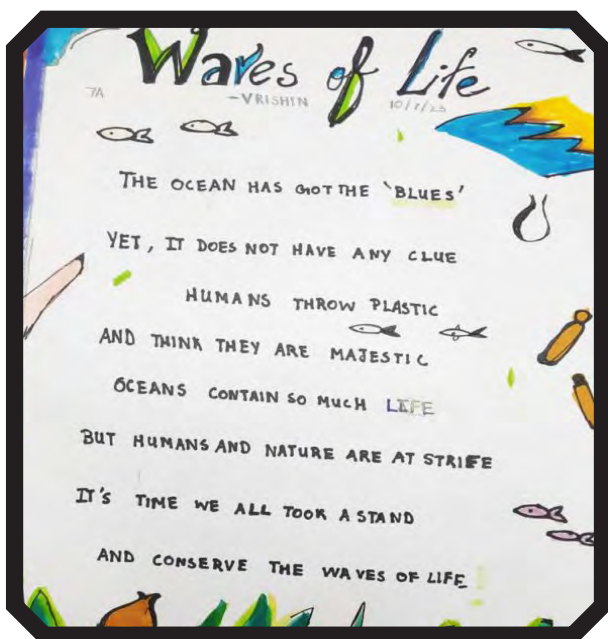 Waves of Life
7A
-VRISHIN
10/7/23
THE OCEAN HAS GOT THE 'BLUES'
YET, IT DOES NOT HAVE ANY CLUE
HUMANS THROW PLASTIC
AND THINK THEY ARE MAJESTIC
OCEANS CONTAIN SO MUCH LIFE
BUT HUMANS AND NATURE ARE AT STRIFE
IT'S TIME WE ALL TOOK A STAND
AND CONSERVE THE WAVES OF LIFE